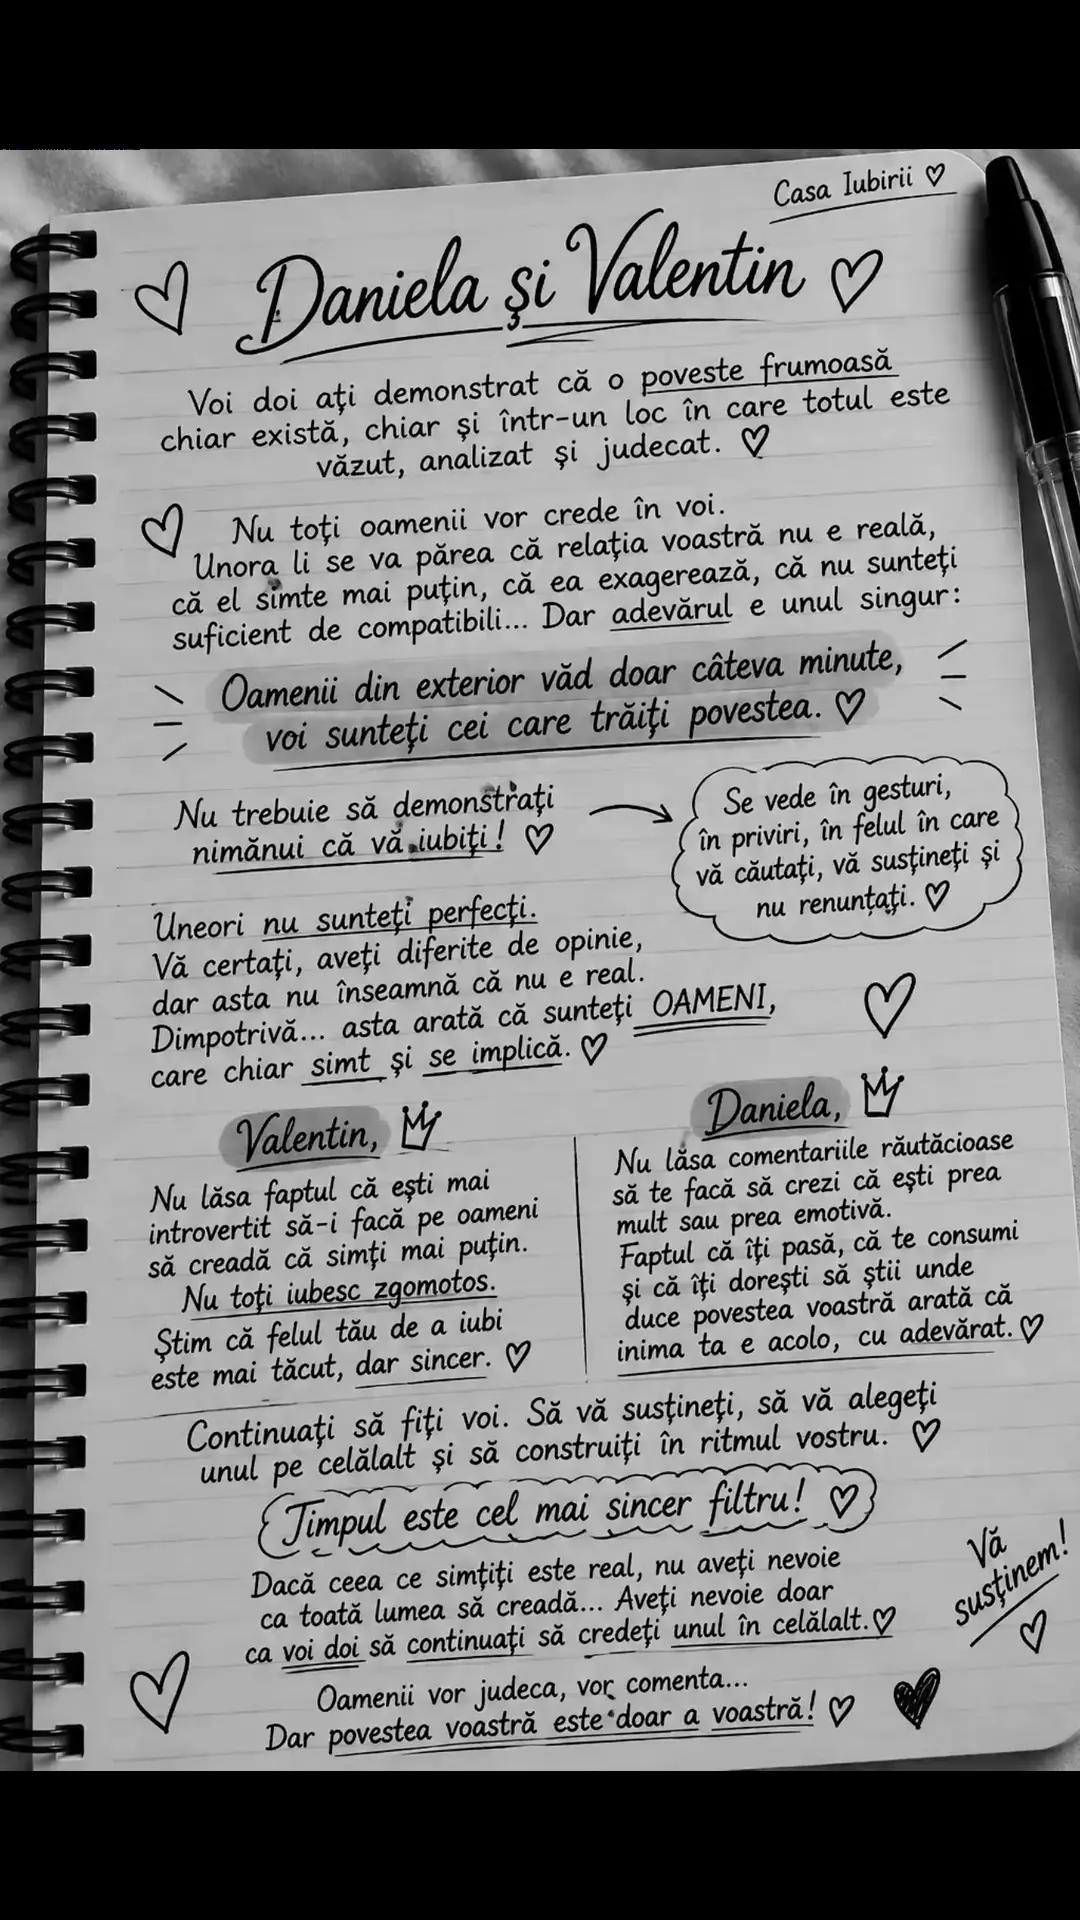 Casa Iubirii ♡
Daniela și Valentin ♡
Voi doi ați demonstrat că o poveste frumoasă
chiar există, chiar și într-un loc în care totul este
văzut, analizat și judecat. ♡
Nu toți oamenii vor crede în voi.
Unora li se va părea că relația voastră nu e reală,
că el simte mai puțin, că ea exagerează, că nu sunteți
suficient de compatibili... Dar adevărul e unul singur:
Oamenii din exterior văd doar câteva minute,
voi sunteți cei care trăiți povestea. ♡
Nu trebuie să demonstrați
nimănui că vă iubiți! ♡
Se vede în gesturi,
în priviri, în felul în care
vă căutați, vă susțineți și
nu renunțați. ♡
Uneori nu sunteți perfecți.
Vă certați, aveți diferite de opinie,
dar asta nu înseamnă că nu e real.
Dimpotrivă... asta arată că sunteți OAMENI,
care chiar simt și se implică. ♡
Valentin,
Nu lăsa faptul că ești mai
introvertit să-i facă pe oameni
să creadă că simți mai puțin.
Nu toți iubesc zgomotos.
Știm că felul tău de a iubi
este mai tăcut, dar sincer. ♡
Daniela,
Nu lăsa comentariile răutăcioase
să te facă să crezi că ești prea
mult sau prea emotivă.
Faptul că îți pasă, că te consumi
și că îți dorești să știi unde
duce povestea voastră arată că
inima ta e acolo, cu adevărat. ♡
Continuați să fiți voi. Să vă susțineți, să vă alegeți
unul pe celălalt și să construiți în ritmul vostru. ♡
Timpul este cel mai sincer filtru! ♡
Dacă ceea ce simțiți este real, nu aveți nevoie
ca toată lumea să creadă... Aveți nevoie doar
ca voi doi să continuați să credeți unul în celălalt. ♡
Vă
susținem!
♡
Oamenii vor judeca, vor comenta...
Dar povestea voastră este doar a voastră! ♡